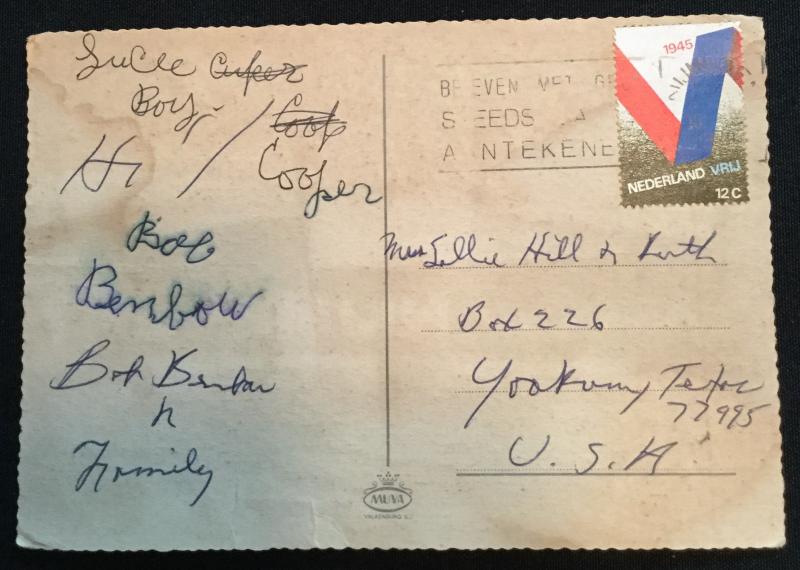 Lucle Cuper
Boy
Hi / Coop
Cooper
Bob
Benbow
Bob Benbow
n
Family
BRIEVEN MET GE
STEEDS LA
AANTEKENE
1945
NEDERLAND VRIJ
12 C
Mrs Lillie Hill & Ruth
Box 226
Yoakum, Texas
77995
U. S. A
MUVA
VALKENBURG